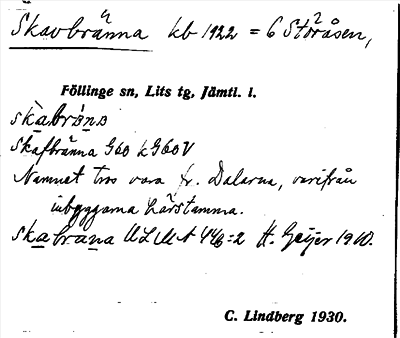 Skavbränna kb 1922 = 6 Storåsen,
Föllinge sn, Lits tg, Jämtl. l.
skabrøna
Skafbränna G60 k G60V
Namnet tros vara fr. Dalarna, varifrån
inbyggarna härstamma.
skabrana ULMA 446:2 H. Geijer 1910.
C. Lindberg 1930.